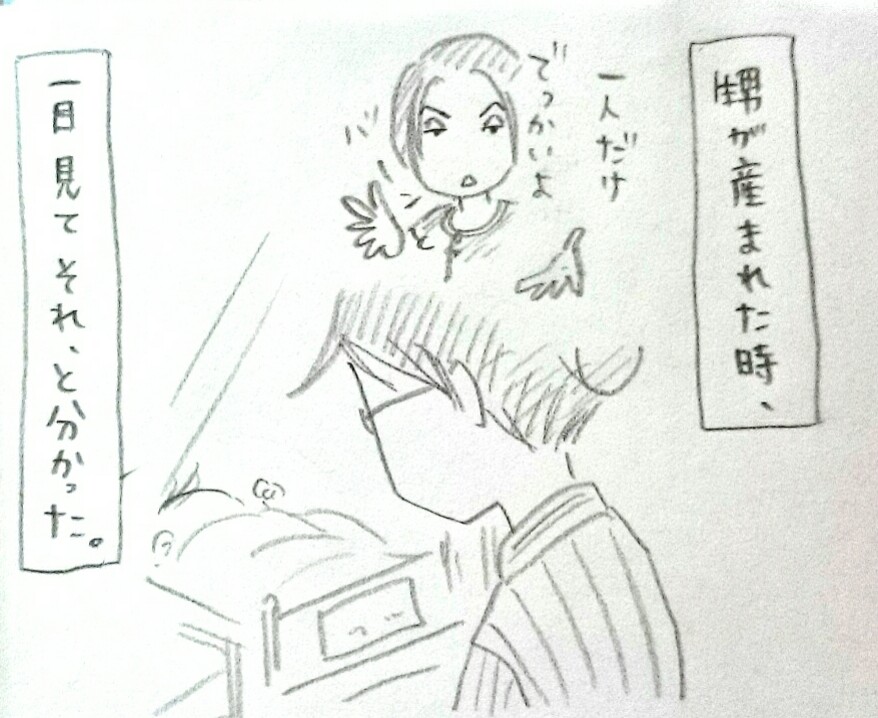 甥が産まれた時、
一人だけ
でっかいよ
一目見てそれ、と分かった。